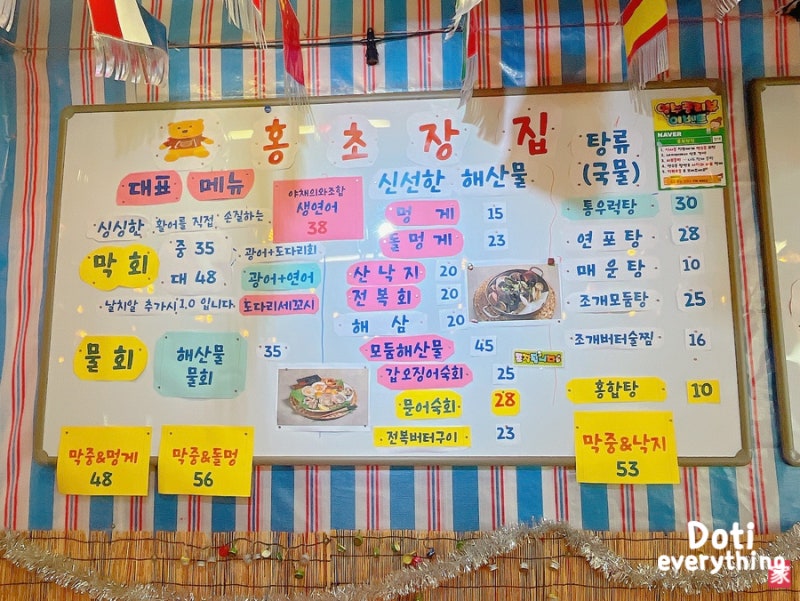 홍초장집
대표 메뉴
싱싱한 황어를 직접 손질하는
막회
중 35
대 48
날치알 추가시 1.0 입니다.
물회
해산물
물회
35
야채의와조합
생연어
38
광어+도다리회
광어+연어
도다리세꼬시
신선한 해산물
멍게 15
돌멍게 23
산낙지 20
전복회 20
해삼 20
모듬해산물 45
갑오징어숙회 25
문어숙회 28
전복버터구이 23
탕류
(국물)
통우럭탕 30
연포탕 28
매운탕 10
조개모듬탕 25
조개버터술찜 16
홍합탕 10
막중&멍게
48
막중&돌멍
56
막중&낙지
53
이벤트
NAVER
Doti
everything
家